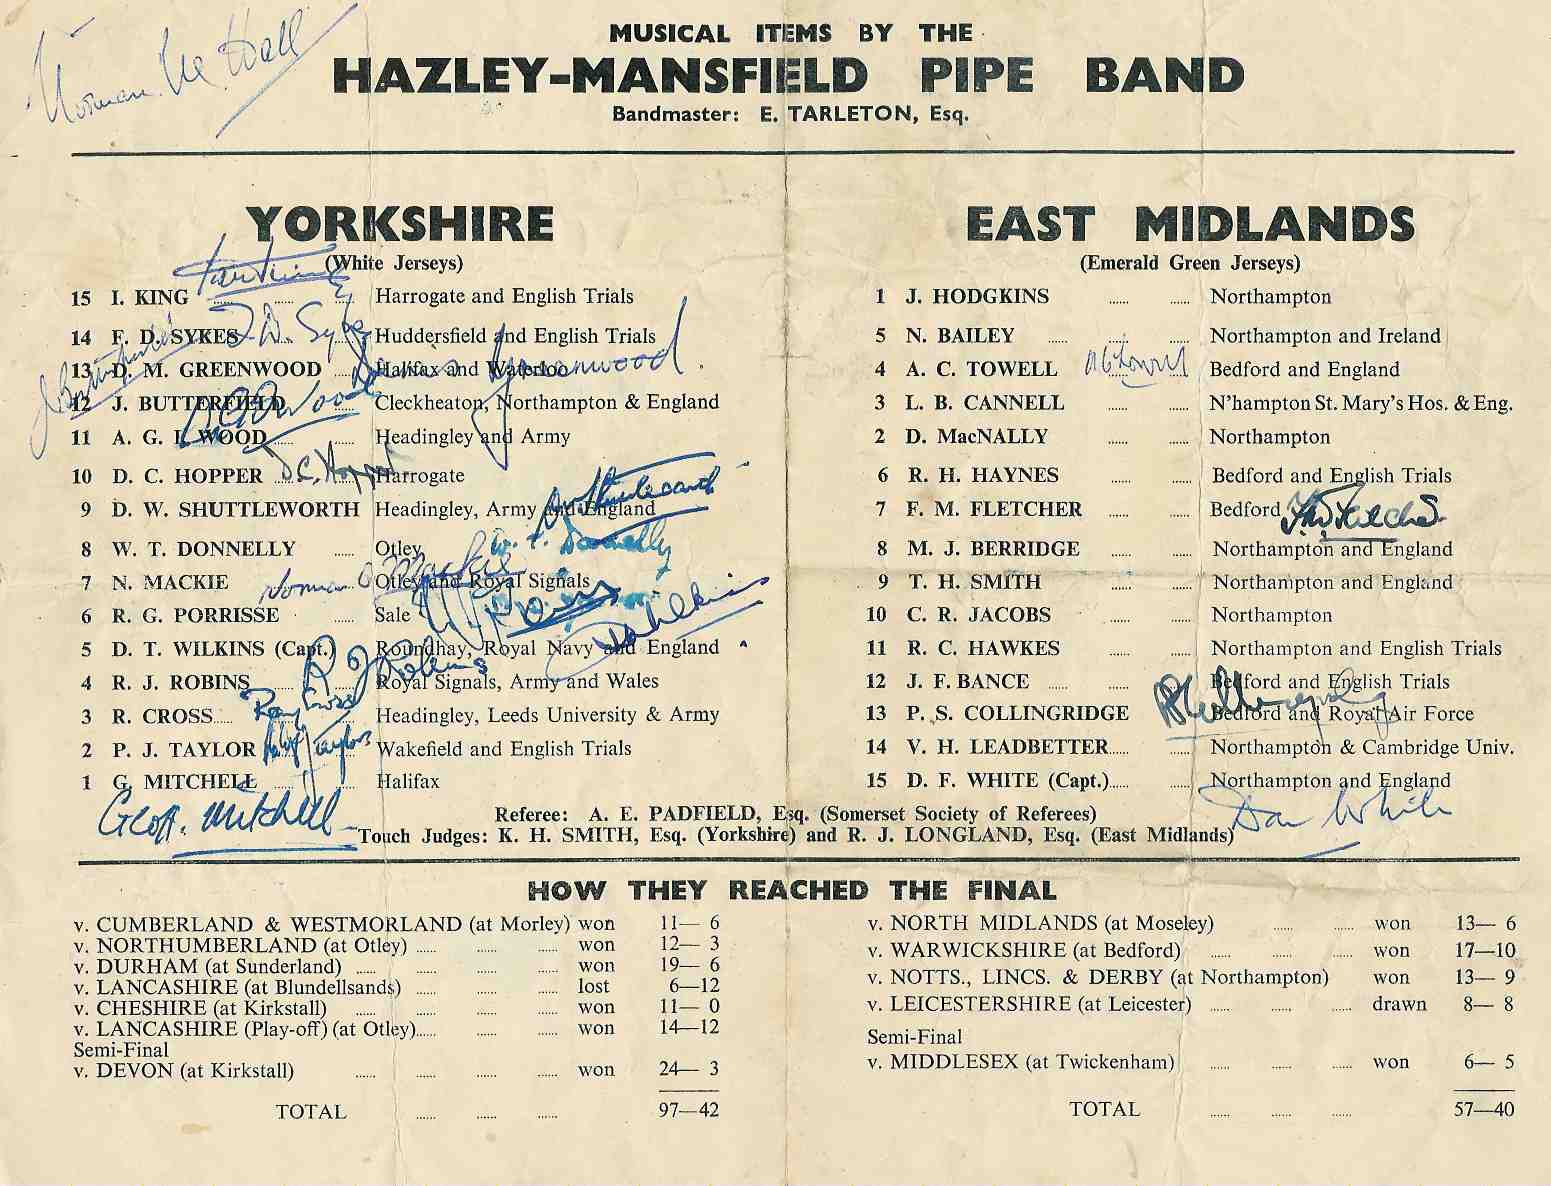 Norman Mc Hall
MUSICAL ITEMS BY THE
HAZLEY-MANSFIELD PIPE BAND
Bandmaster: E. TARLETON, Esq.
YORKSHIRE
(White Jerseys)
15 I. KING ...... ...... ...... Harrogate and English Trials
14 F. D. SYKES ...... ...... Huddersfield and English Trials
F. D. Sykes
13 D. M. GREENWOOD ...... Halifax and Waterloo
Dennis Greenwood
12 J. BUTTERFIELD ...... Cleckheaton, Northampton & England
J Butterfield
11 A. G. I. WOOD ...... ...... Headingley and Army
AGI Wood
10 D. C. HOPPER ...... Harrogate
D. C. Hopper
9 D. W. SHUTTLEWORTH Headingley, Army and England
8 W. T. DONNELLY ...... Otley
W. T. Donnelly
7 N. MACKIE ...... Otley and Royal Signals
Norman Mackie
6 R. G. PORRISSE ...... Sale
5 D. T. WILKINS (Capt.) Roundhay, Royal Navy and England
D Wilkins
4 R. J. ROBINS ...... ...... Royal Signals, Army and Wales
R J Robins
3 R. CROSS ...... ...... Headingley, Leeds University & Army
Ray Cross
2 P. J. TAYLOR ...... Wakefield and English Trials
Philip Taylor
1 G. MITCHELL ...... ...... Halifax
Geoff. Mitchell
EAST MIDLANDS
(Emerald Green Jerseys)
1 J. HODGKINS ...... ...... Northampton
5 N. BAILEY ...... ...... ...... Northampton and Ireland
4 A. C. TOWELL ...... Bedford and England
A C Towell
3 L. B. CANNELL ...... ...... N'hampton St. Mary's Hos. & Eng.
2 D. MacNALLY ...... ...... Northampton
6 R. H. HAYNES ...... ...... Bedford and English Trials
7 F. M. FLETCHER ...... Bedford
F M Fletcher
8 M. J. BERRIDGE ...... ...... Northampton and England
9 T. H. SMITH ...... ...... Northampton and England
10 C. R. JACOBS ...... ...... Northampton
11 R. C. HAWKES ...... ...... Northampton and English Trials
12 J. F. BANCE ...... ...... Bedford and English Trials
13 P. S. COLLINGRIDGE Bedford and Royal Air Force
14 V. H. LEADBETTER...... ...... Northampton & Cambridge Univ.
15 D. F. WHITE (Capt.)...... ...... Northampton and England
Don White
Referee: A. E. PADFIELD, Esq. (Somerset Society of Referees)
Touch Judges: K. H. SMITH, Esq. (Yorkshire) and R. J. LONGLAND, Esq. (East Midlands)
HOW THEY REACHED THE FINAL
v. CUMBERLAND & WESTMORLAND (at Morley) won 11— 6
v. NORTHUMBERLAND (at Otley) ...... ...... ...... won 12— 3
v. DURHAM (at Sunderland) ...... ...... ...... ...... won 19— 6
v. LANCASHIRE (at Blundellsands) ...... ...... ...... lost 6—12
v. CHESHIRE (at Kirkstall) ...... ...... ...... ...... won 11— 0
v. LANCASHIRE (Play-off) (at Otley)...... ...... ...... won 14—12
Semi-Final
v. DEVON (at Kirkstall) ...... ...... ...... ...... won 24— 3
TOTAL ...... ...... ...... 97—42
v. NORTH MIDLANDS (at Moseley) ...... ...... won 13— 6
v. WARWICKSHIRE (at Bedford) ...... ...... ...... won 17—10
v. NOTTS., LINCS. & DERBY (at Northampton) won 13— 9
v. LEICESTERSHIRE (at Leicester) ...... ...... ...... drawn 8— 8
Semi-Final
v. MIDDLESEX (at Twickenham) ...... ...... ...... won 6— 5
TOTAL ...... ...... ...... 57—40